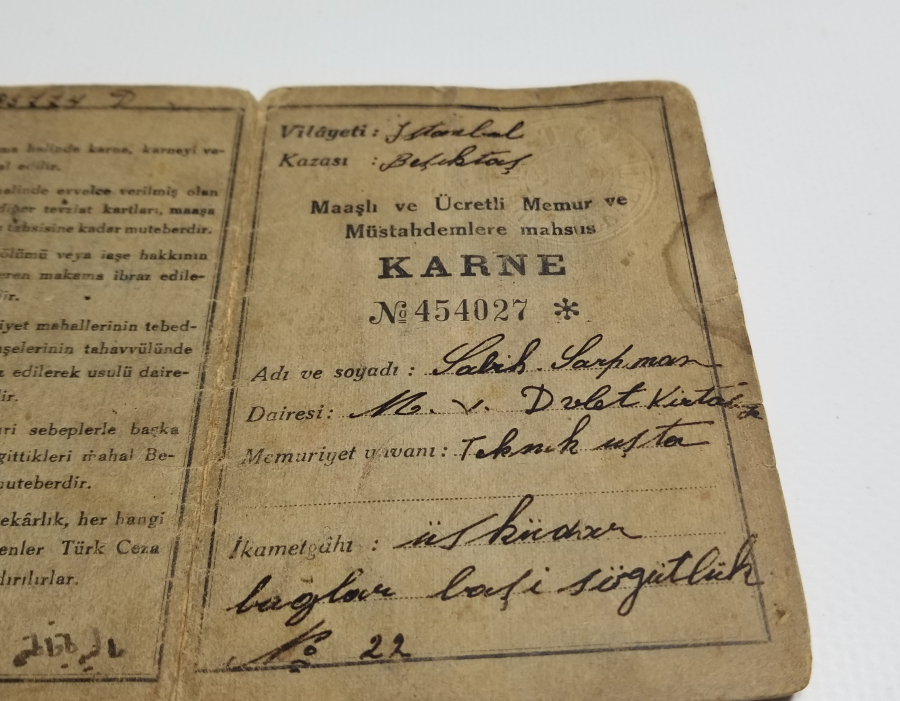 halinde karne, karneyi ve-
al edilir.
halinde evvelce verilmiş olan
diğer tevziat kartları, maaşa
tahsisine kadar muteberdir.
ölümü veya iaşe hakkının
eren makama ibraz edile-
ir.
iyet mahallerinin tebed-
şelerinin tahavvülünde
edilerek usulü daire-
ir.
ri sebeplerle başka
gittikleri mahal Be-
muteberdir.
ekârlık, her hangi
enler Türk Ceza
dırılırlar.
Vilâyeti : İstanbul
Kazası : Beşiktaş
Maaşlı ve Ücretli Memur ve
Müstahdemlere mahsus
KARNE
№ 454027 *
Adı ve soyadı : Sabih Sarpman
Dairesi : M. V. Dvlet
Memuriyet unvanı : Teknik uşta
İkametgâhı : üsküdar
bağlar başi söğütlük
No 22